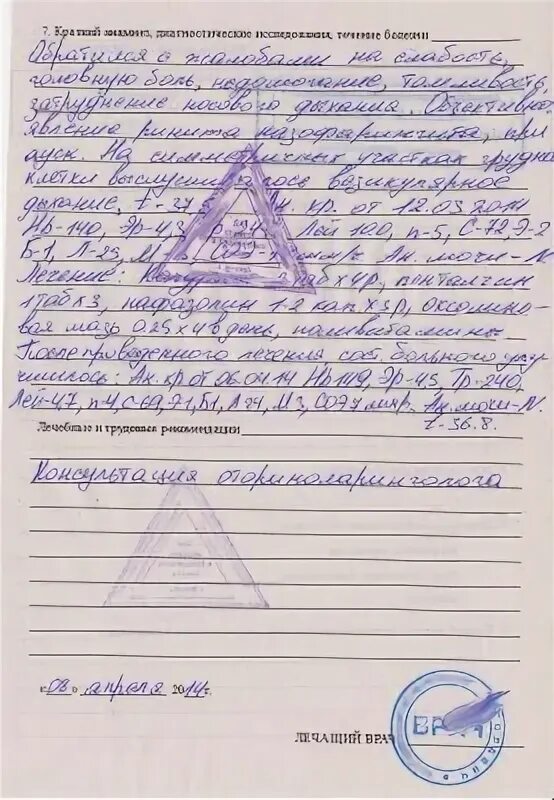 7. Краткий анамнез, диагностические исследования, течение болезни
Обратился с жалобами на слабость,
головную боль, недомогание,
затруднение носового дыхания. Объективно:
явления ринита назофарингита, при
ауск. На симметричных участках грудн.
клетки везикулярное
дыхание, t-37 кр. от 12.03.2014
Нb-140, Эр-4,3 Лей 100, п-5, С-72, Э-2
Б-1, Л-23, М СОЭ Ан. мочи-N.
Лечение: таб х 4р, пенталгин
1таб х 3, нафазолин 1-2 кап х 3р, оксолино-
вая мазь 0.25 х 4 в день, поливитамины
После проведенного лечения сост. больного улу-
чшилось: Ан. кр от 06.04.14 Нb 119, Эр-45, Тр-240,
Лей-47, п-4, с-69, Э1, Б1, Л24, М3, СОЭ7 мм/ч. Ан. мочи-N.
t-36.8.
Лечебные и трудовые рекомендации
Консультация оториноларинголога
« 08 » апреля 2014г.
ЛЕЧАЩИЙ ВРАЧ
ВРАЧ